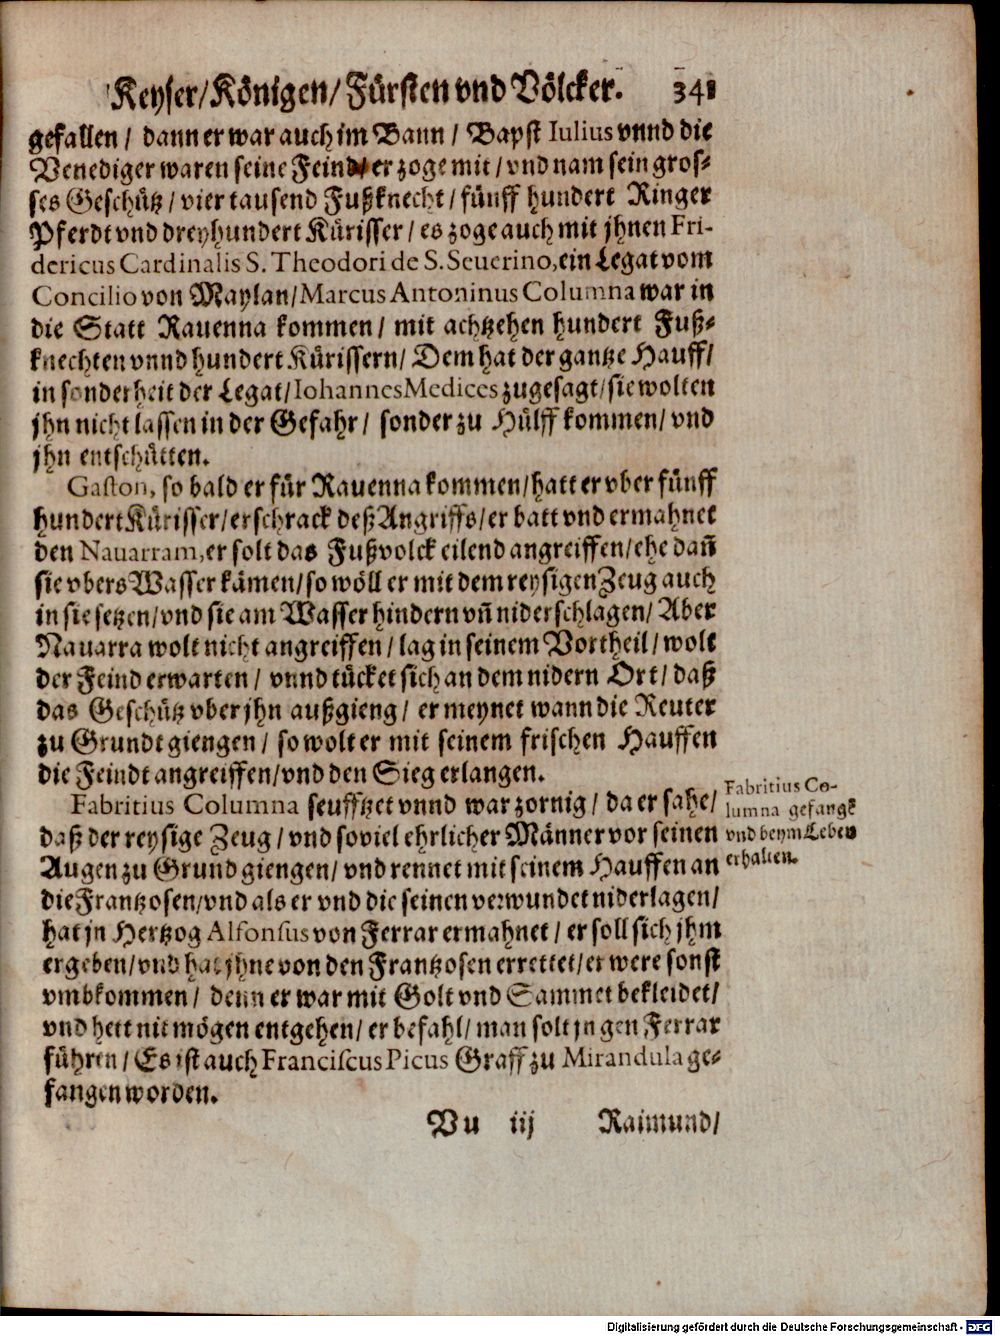 Keyser/Königen/Fürsten vnd Völcker. 341
gefallen / dann er war auch im Bann / Bapst Iulius vnnd die
Venediger waren seine Feind/er zoge mit / vnd nam sein gros-
ses Geschütz / vier tausend Fußknecht / fünff hundert Ringer
Pferdt vnd dreyhundert Kürisser / es zoge auch mit jhnen Fri-
dericus Cardinalis S. Theodori de S. Seuerino, ein Legat vom
Concilio von Maylan/Marcus Antoninus Columna war in
die Statt Rauenna kommen / mit achtzehen hundert Fuß-
knechten vnnd hundert Kürissern/ Dem hat der gantze Hauff/
in sonderheit der Legat/Iohannes Medices zugesagt/sie wolten
jhn nicht lassen in der Gefahr / sonder zu Hülff kommen/ vnd
jhn entschütten.
Gaston, so bald er für Rauenna kommen/hatt er vber fünff
hundert Kürisser/erschrack deß Angriffs/er batt vnd ermahnet
den Nauarram, er solt das Fußvolck eilend angreiffen/ehe dañ
sie vbers Wasser kämen/so wöll er mit dem reysigen Zeug auch
in sie setzen/vnd sie am Wasser hindern vñ niderschlagen/ Aber
Nauarra wolt nicht angreiffen / lag in seinem Vortheil / wolt
der Feind erwarten / vnnd tücket sich an dem nidern Ort / daß
das Geschütz vber jhn außgieng / er meynet wann die Reuter
zu Grundt giengen / so wolt er mit seinem frischen Hauffen
die Feindt angreiffen/vnd den Sieg erlangen.
Fabritius Columna seufftzet vnnd war zornig / da er sahe/
daß der reysige Zeug / vnd soviel ehrlicher Männer vor seinen
Augen zu Grund giengen / vnd rennet mit seinem Hauffen an
die Frantzosen/vnd als er vnd die seinen verwundet niderlagen/
hat jn Hertzog Alfonsus von Ferrar ermahnet / er soll sich jhm
ergeben/vnd hat jhne von den Frantzosen errettet/er were sonst
vmbkommen / denn er war mit Golt vnd Sammet bekleidet/
vnd hett nit mögen entgehen/ er befahl/ man solt jn gen Ferrar
führen / Es ist auch Franciscus Picus Graff zu Mirandula ge-
fangen worden.
Fabritius Co-
lumna gefangē
vnd beym Leben
erhalten.
Vu iij Raimund/
Digitalisierung gefördert durch die Deutsche Forschungsgemeinschaft - DFG